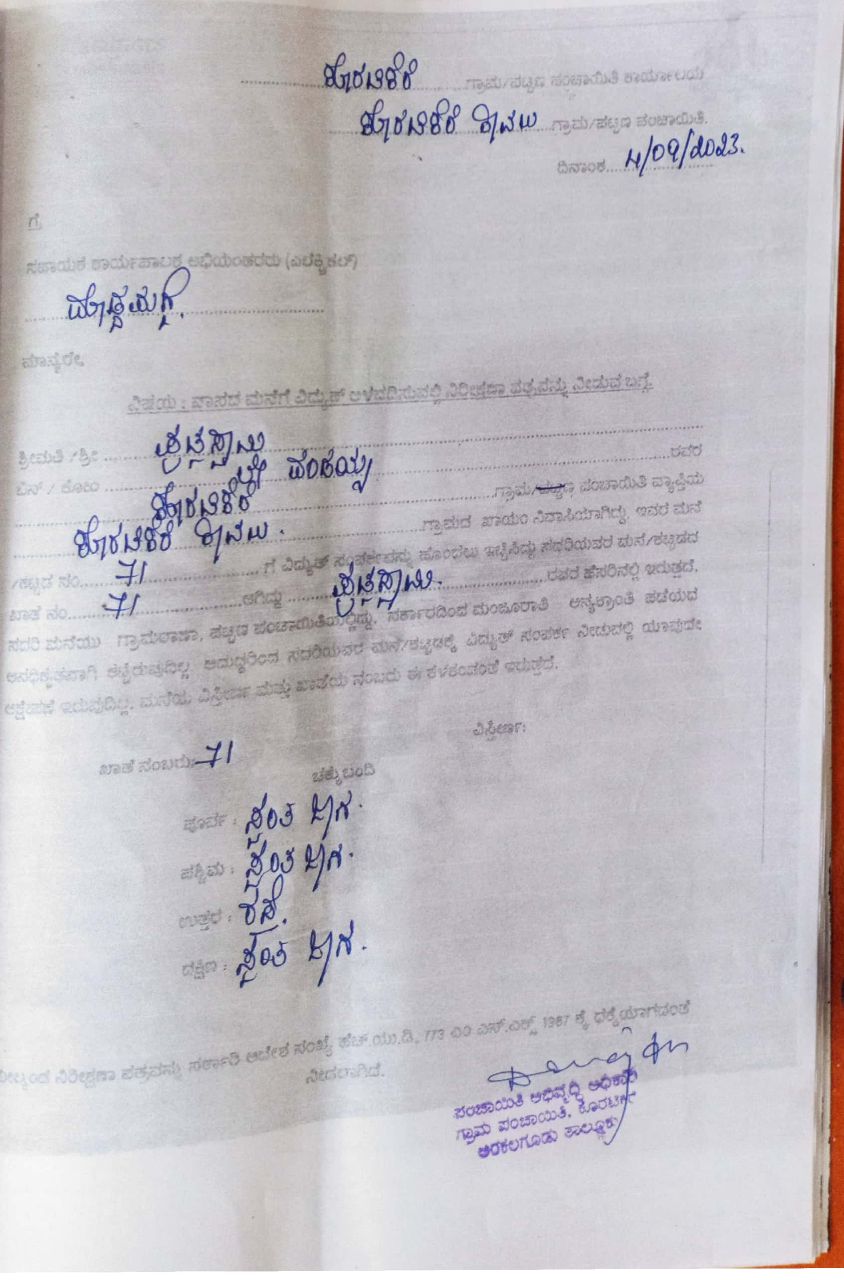 ಕೊರಟಿಕೆರೆ ಗ್ರಾಮ/ಪಟ್ಟಣ ಪಂಚಾಯಿತಿ ಕಾರ್ಯಾಲಯ
ಕೊರಟಿಕೆರೆ ಕಾವಲು ಗ್ರಾಮ/ಪಟ್ಟಣ ಪಂಚಾಯಿತಿ.
ದಿನಾಂಕ 4/09/2023.
ಗೆ,
ಸಹಾಯಕ ಕಾರ್ಯಪಾಲಕ ಅಭಿಯಂತರರು (ಎಲೆಕ್ಟ್ರಿಕಲ್)
ಮಾನ್ಯರೇ,
ವಿಷಯ : ವಾಸದ ಮನೆಗೆ ವಿದ್ಯುತ್ ಅಳವಡಿಸುವಲ್ಲಿ ನಿರೀಕ್ಷಣಾ ಪತ್ರವನ್ನು ನೀಡುವ ಬಗ್ಗೆ.
ಶ್ರೀಮತಿ /ಶ್ರೀ
ಬಿನ್ / ಕೋಂ ರವರ
ಕೊರಟಿಕೆರೆ ಗ್ರಾಮ/ಪಟ್ಟಣ ಪಂಚಾಯಿತಿ ವ್ಯಾಪ್ತಿಯ
ಕೊರಟಿಕೆರೆ ಕಾವಲು . ಗ್ರಾಮದ ಖಾಯಂ ನಿವಾಸಿಯಾಗಿದ್ದು, ಇವರ ಮನೆ
/ಕಟ್ಟಡ ಸಂ. 71 ಗೆ ವಿದ್ಯುತ್ ಸಂಪರ್ಕವನ್ನು ಹೊಂದಲು ಇಚ್ಛಿಸಿದ್ದು ಸದರಿಯವರ ಮನೆ/ಕಟ್ಟಡದ
ಖಾತೆ ನಂ. 71 ಆಗಿದ್ದು ರವರ ಹೆಸರಿನಲ್ಲಿ ಇರುತ್ತದೆ.
ಸದರಿ ಮನೆಯು ಗ್ರಾಮಠಾಣಾ, ಪಟ್ಟಣ ಪಂಚಾಯಿತಿಯಲ್ಲಿದ್ದು, ಸರ್ಕಾರದಿಂದ ಮಂಜೂರಾತಿ ಅನ್ಯಕ್ರಾಂತಿ ಪಡೆಯದೆ
ಅನಧಿಕೃತವಾಗಿ ಕಟ್ಟಿರುವುದಿಲ್ಲ. ಆದುದ್ದರಿಂದ ಸದರಿಯವರ ಮನೆ/ಕಟ್ಟಡಕ್ಕೆ ವಿದ್ಯುತ್ ಸಂಪರ್ಕ ನೀಡುವಲ್ಲಿ ಯಾವುದೇ
ಆಕ್ಷೇಪಣೆ ಇರುವುದಿಲ್ಲ. ಮನೆಯ ವಿಸ್ತೀರ್ಣ ಮತ್ತು ಖಾತೆಯ ನಂಬರು ಈ ಕೆಳಕಂಡಂತೆ ಇರುತ್ತದೆ.
ವಿಸ್ತೀರ್ಣ:
ಖಾತೆ ನಂಬರು: 71
ಚಕ್ಕುಬಂದಿ
ಪೂರ್ವ : ಸ್ವಂತ ಜಾಗ.
ಪಶ್ಚಿಮ : ಸ್ವಂತ ಜಾಗ.
ಉತ್ತರ : ರಸ್ತೆ.
ದಕ್ಷಿಣ : ಸ್ವಂತ ಜಾಗ.
ಮೇಲ್ಕಂಡ ನಿರೀಕ್ಷಣಾ ಪತ್ರವನ್ನು ಸರ್ಕಾರಿ ಆದೇಶ ಸಂಖ್ಯೆ ಹೆಚ್.ಯು.ಡಿ. 773 ಎಂ ಎನ್.ಎಕ್ಸ್ 1987 ಕ್ಕೆ ಧಕ್ಕೆಯಾಗದಂತೆ
ನೀಡಲಾಗಿದೆ.
ಪಂಚಾಯಿತಿ ಅಭಿವೃದ್ಧಿ ಅಧಿಕಾರಿ
ಗ್ರಾಮ ಪಂಚಾಯಿತಿ, ಕೊರಟಿಕೆರೆ
ಅರಕಲಗೂಡು ತಾಲ್ಲೂಕು